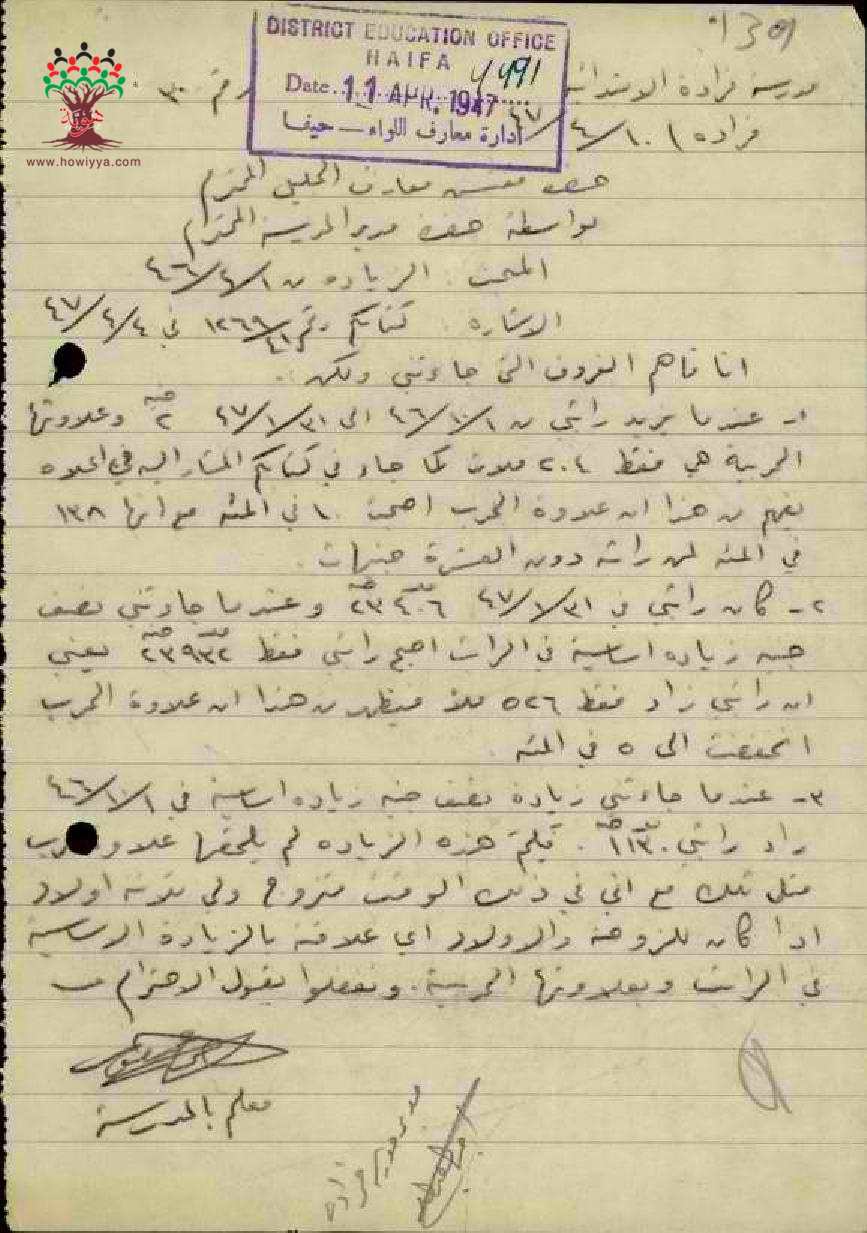 DISTRICT EDUCATION OFFICE
HAIFA
4491
Date. 11 APR. 1947
إدارة معارف اللواء — حيفا
هوية
www.howiyya.com
مدرسة فراده الابتدائية
رقم ٣٠
فراده ١٠/٤/٤٧
حضرة مفتش معارف الجليل المحترم
بواسطة حضرة مدير المدرسة المحترم
المبحث : الزيادة من ١/٤/٤٦
الاشارة : كتابكم رقم ١٢٦٩/٤١ في ٤/٤/٤٧
انا فاهم الظروف التي جاءتني ولكن :
١- عندما يزيد راتبي من ١/١٠/٤٦ الى ٣١/١/٤٧ ٢ جنيه وعلاوتها
الحربية هي فقط ٢٠٤ ملات كما جاء في كتابكم المشار اليه في اعلاه
يفهم من هذا ان علاوة الحرب اصبحت ١٠ في المئه مع انها ١٣٨
في المئه لمن راتبه دون العشرة جنيهات .
٢- كان راتبي في ٣١/١/٤٧ ٢٣ ٤٠٦ وعندما جاءتني نصف
جنيه زياده اساسية في الراتب اصبح راتبي فقط ٢٣ ٩٣٢ يعني
ان راتبي زاد فقط ٥٢٦ ملاً فيظهر من هذا ان علاوة الحرب
انخفضت الى ٥ في المئه .
٣- عندما جاءتني زيادة نصف جنيه زياده اساسية في ١/١٠/٤٦
زاد راتبي . هذه الزياده لم يلحقها
مثل تلك مع اني في ذلك الوقت متزوج ولي ثلاثة اولاد
اذا كان للزوجة والاولاد اي علاقة بالزيادة الاساسية
في الراتب وبعلاوتها الحربية . وتفضلوا بقبول الاحترام
معلم بالمدرسة
فراده